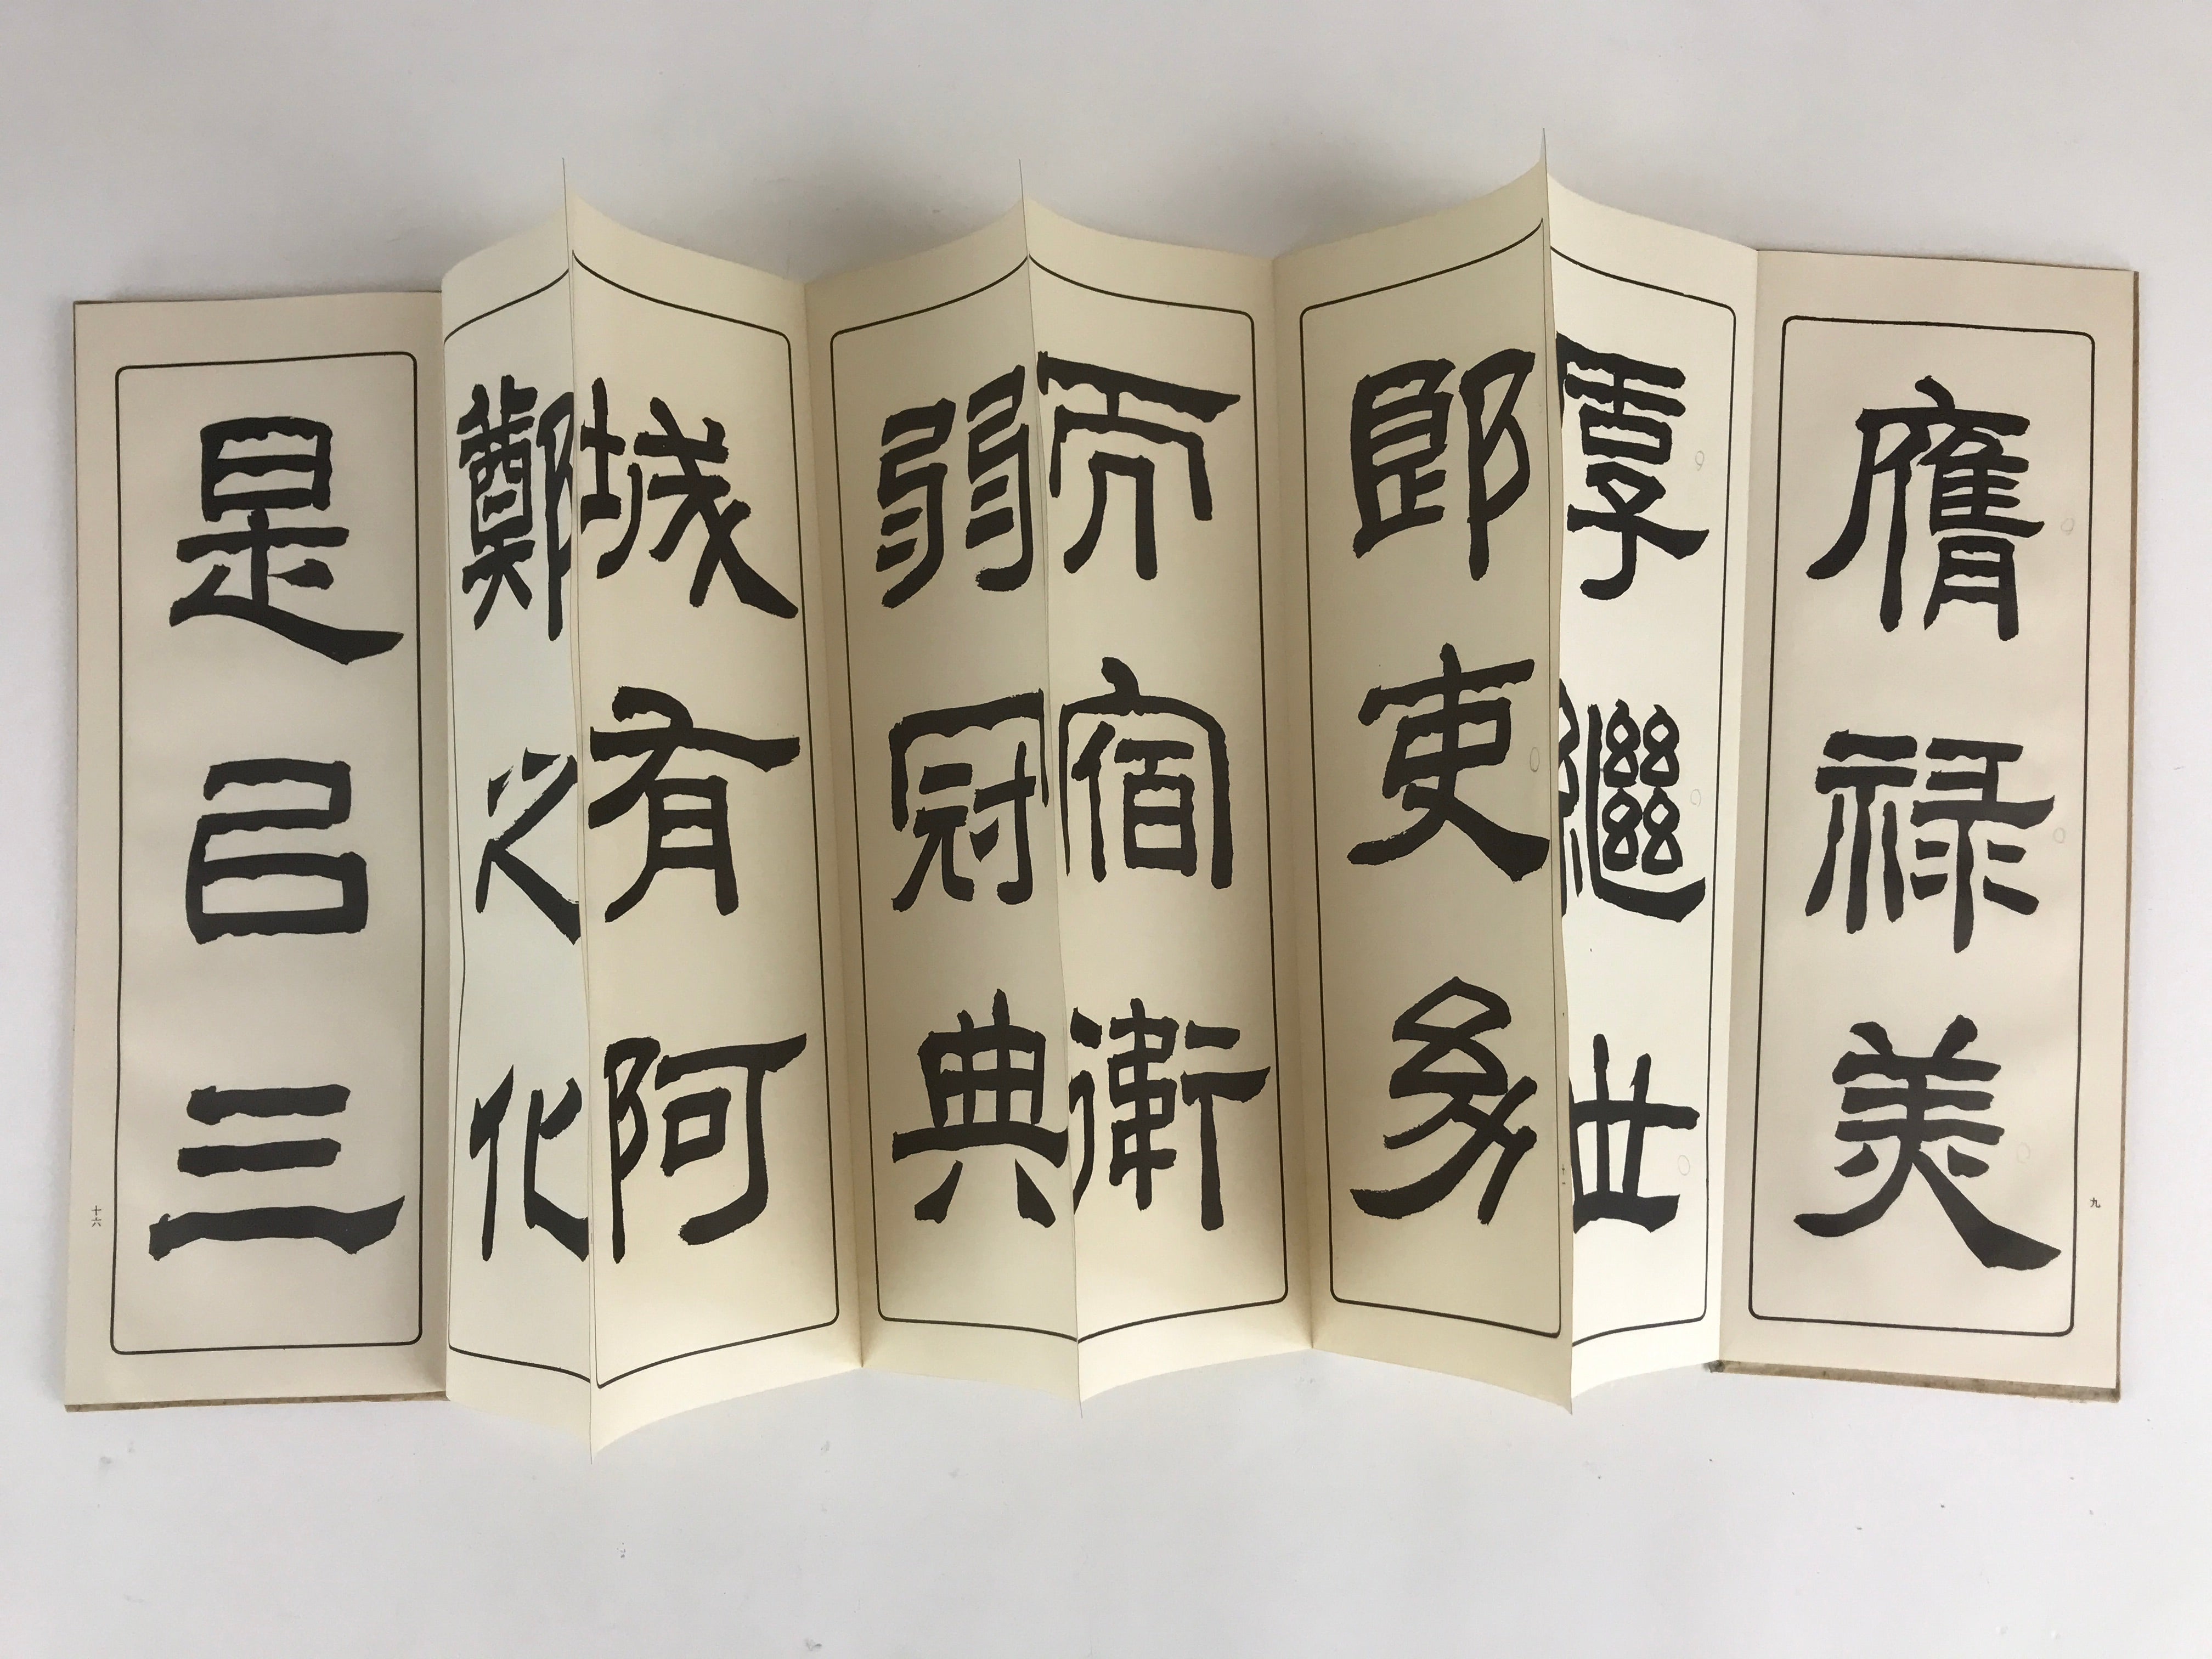 膺禄美
九
厚繼世
郎吏幼
而宿衛
弱冠典
城有阿
鄭之化
是㠯三
十六